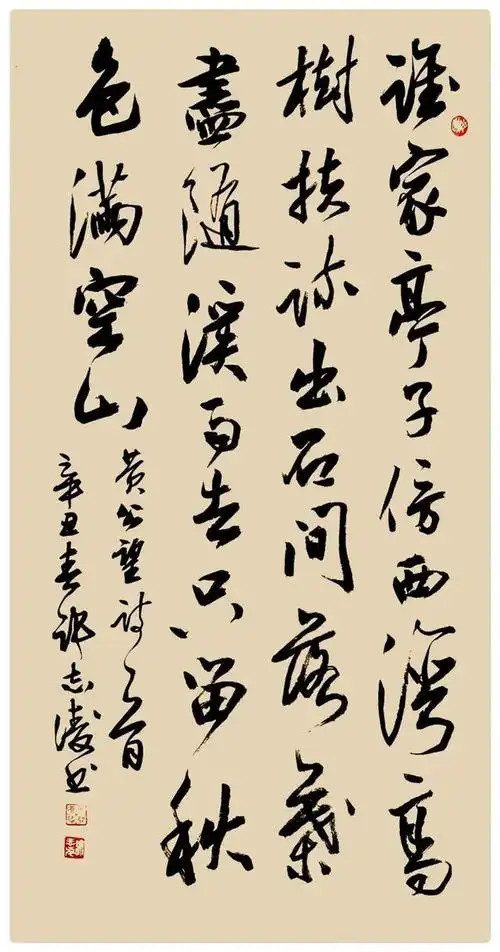 誰家亭子傍西灣高
樹扶疏出石間落葉
盡隨溪雨去只留秋
色滿空山
黄公望詩一首
辛丑春許志濤书